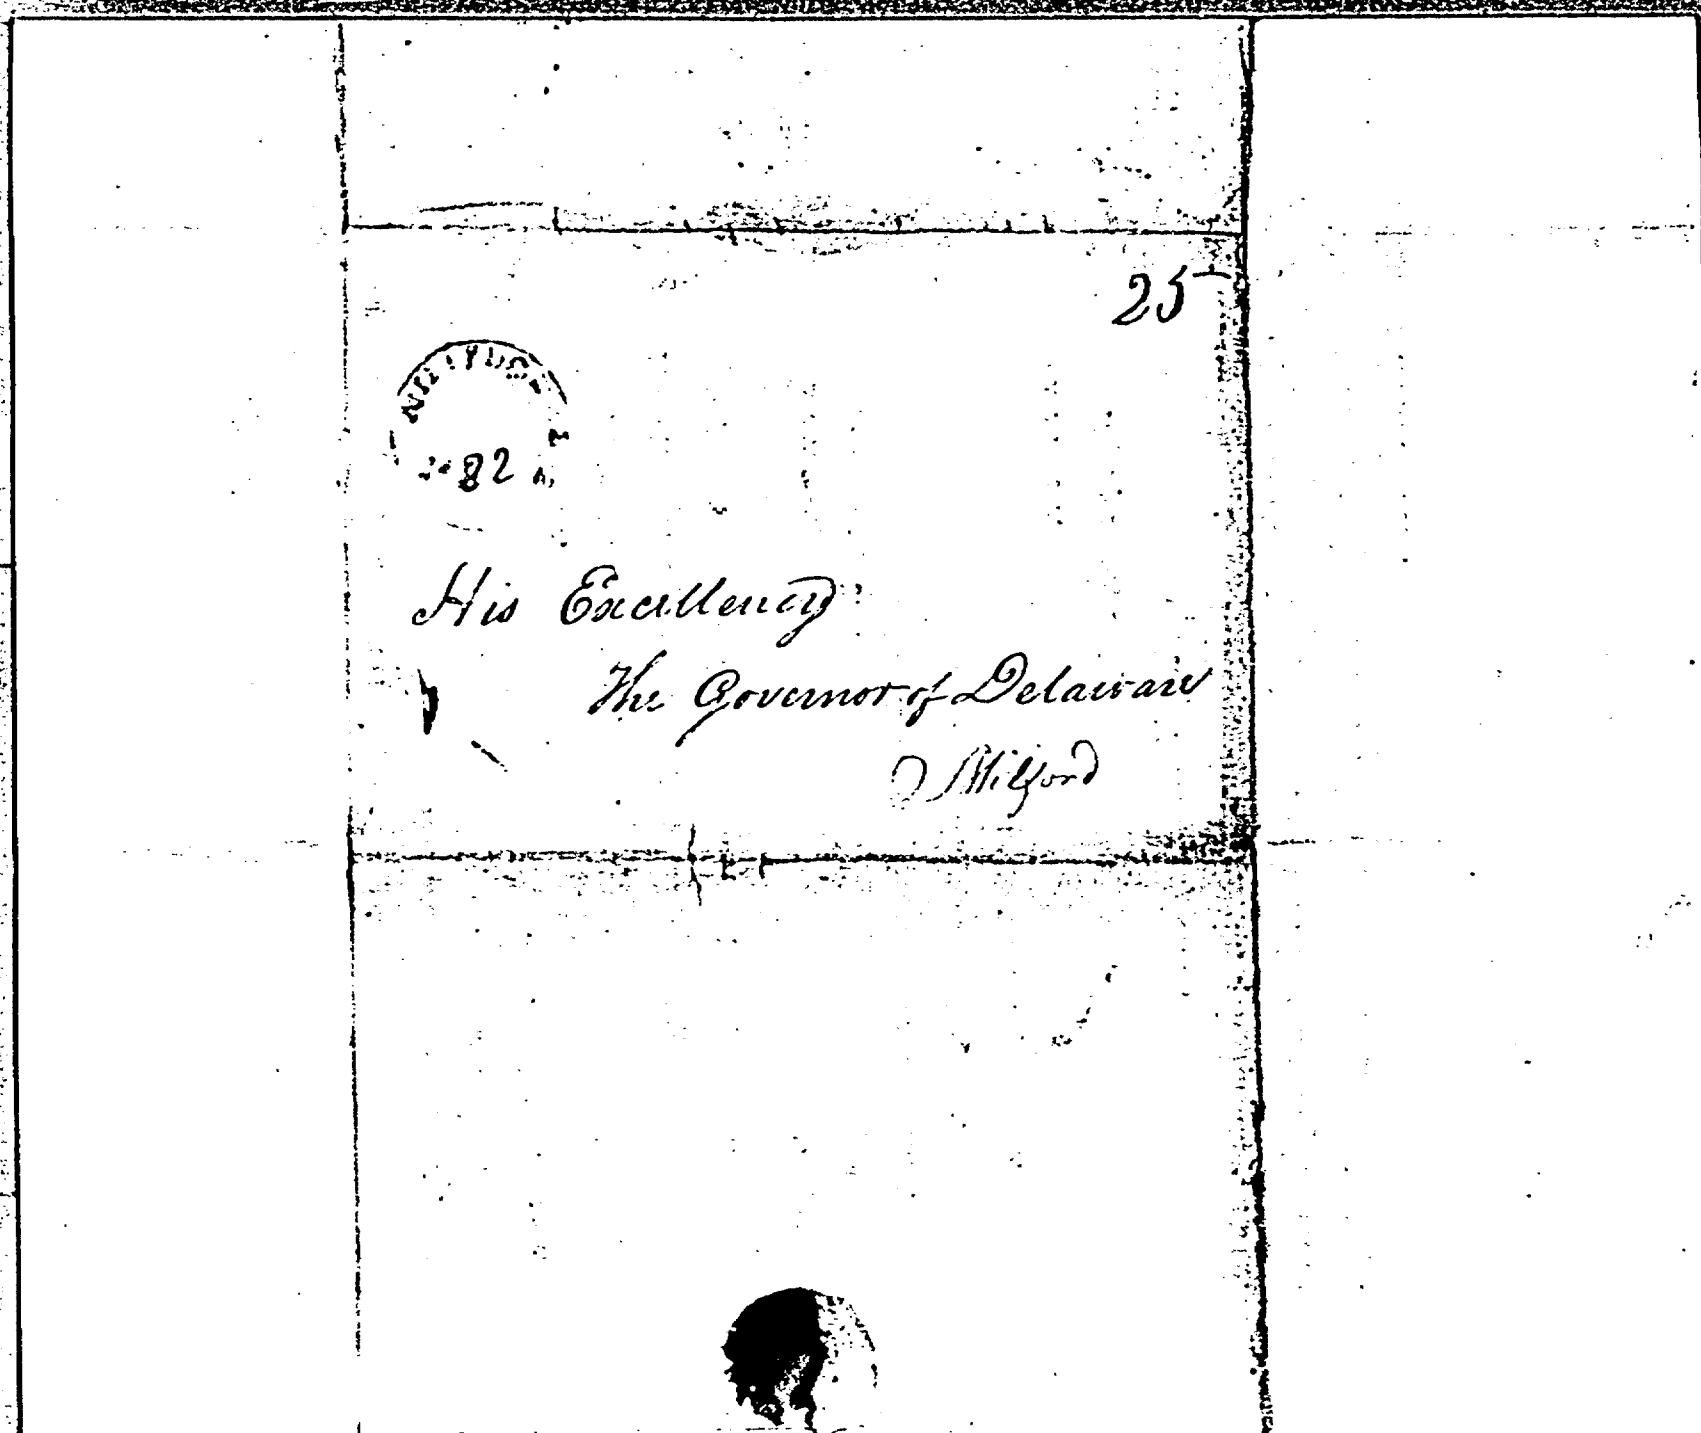 25
82
His Excellency
The Governor of Delaware
Milford